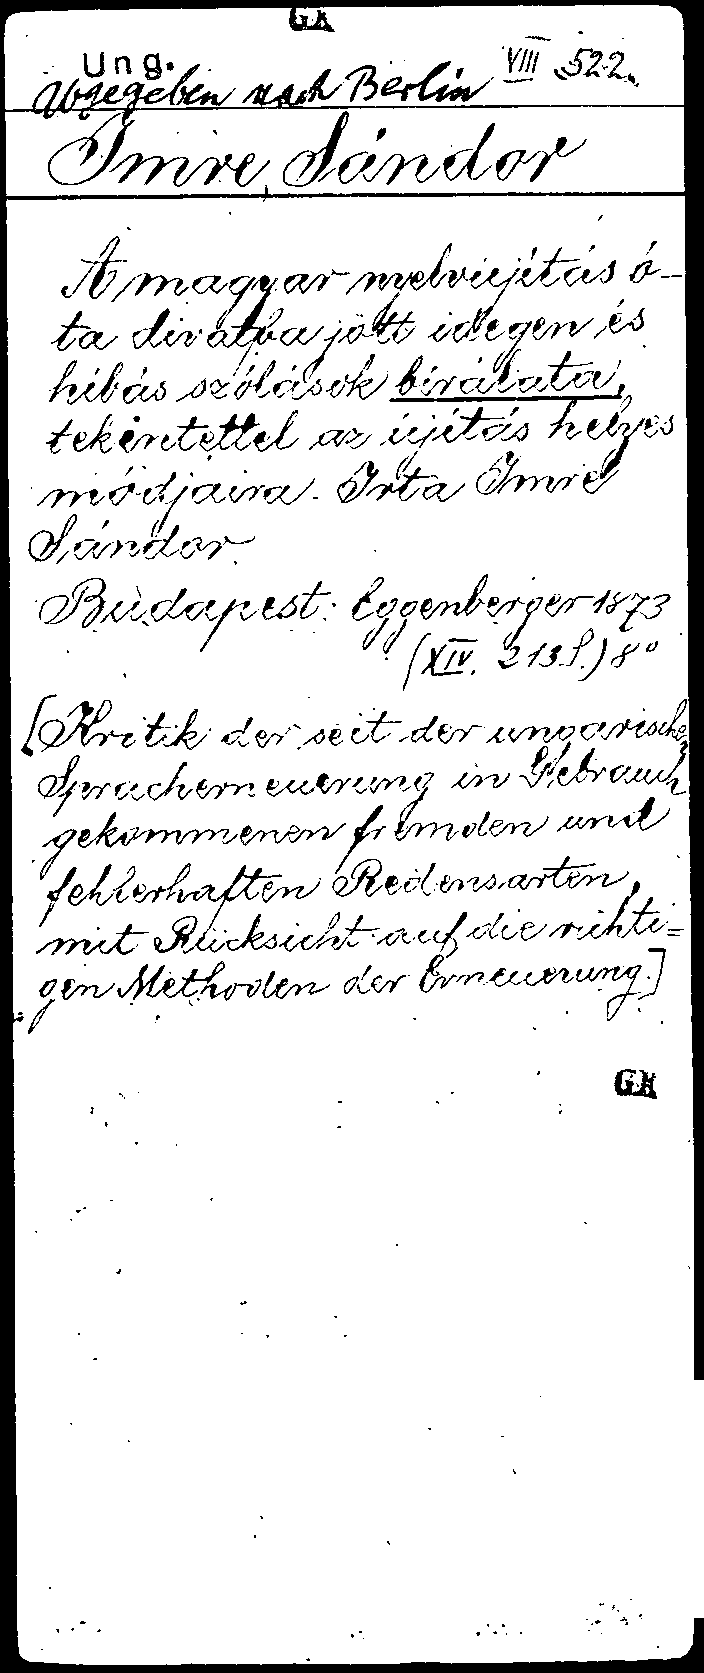 GK
Ung.
VIII 522.
Abgegeben nach Berlin
Imre, Sándor
A magyar nyelvújítás ó-
ta divatba jött idegen és
hibás szólások bírálata,
tekintettel az újítás helyes
módjaira. Irta Imre
Sándor.
Budapest: Eggenberger 1873
(XIV. 213 S.) 8°
[Kritik der seit der ungarischen
Spracherneuerung in Gebrauch
gekommenen fremden und
fehlerhaften Redensarten,
mit Rücksicht auf die richti=
gen Methoden der Erneuerung.]
GK